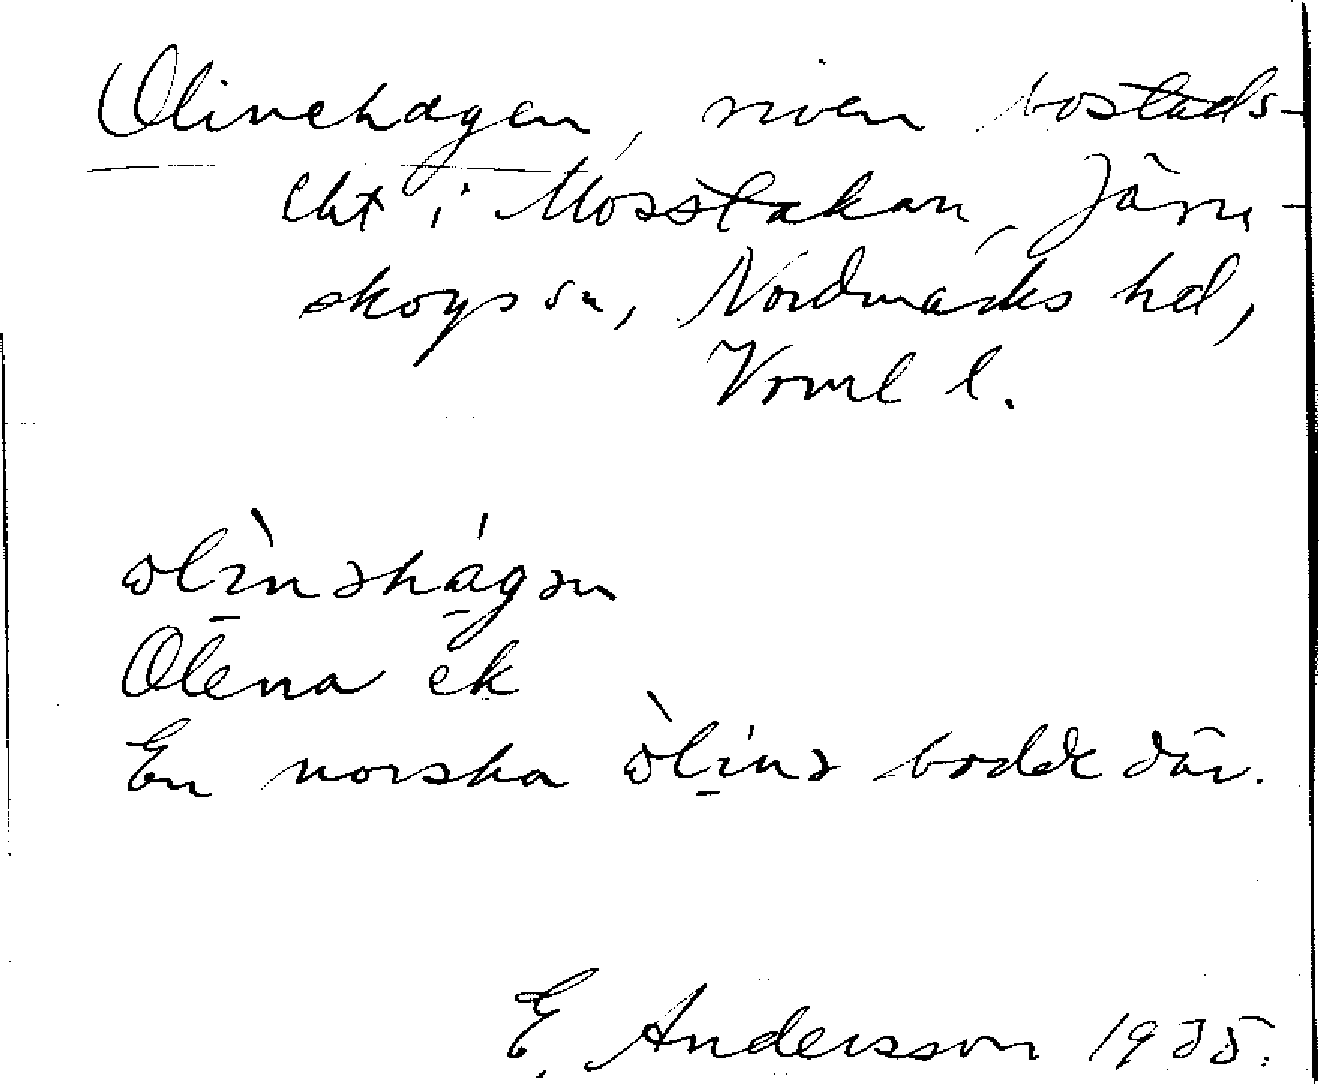 Olinehagen, riven bostads-
lht i Mosstakan, Järn-
skogs sn, Nordmarks hd,
Vrml l.
ɷlìnəhágən
Olena ek
En norska ɷ̀linə bodde där.
E. Andersson 1935.